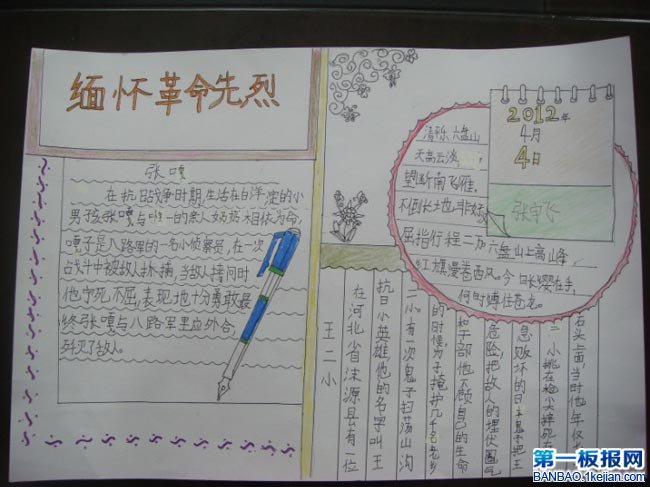 缅怀革命先烈
张嘎
在抗日战争时期,生活在白洋淀的小
男孩张嘎与唯一的亲人奶奶相依为命,
嘎子是八路军的一名小侦察员,在一次
战斗中被敌人扑捕,当敌人拷问时
他宁死不屈,表现地十分勇敢最
终张嘎与八路军里应外合,
歼灭了敌人。
2012年
4月
4日
张宇飞
六盘山
天高云淡,
望断南飞雁。
不倒长城非好
屈指行程二万六盘山上高峰
红旗漫卷西风。今日长缨在手,
何时缚住苍龙。
王二小
在河北省涞源县有一位
抗日小英雄他的名字叫王
二小有一次鬼子扫荡山沟
的时候,为了掩护几千名老乡
和干部他不顾自己的生命
危险,把敌人的埋伏圈气
急败坏的日本鬼子把王
二小挑在枪尖摔死在
石头上面,当时他年仅
第一板报网
BANBAO.1kejian.com